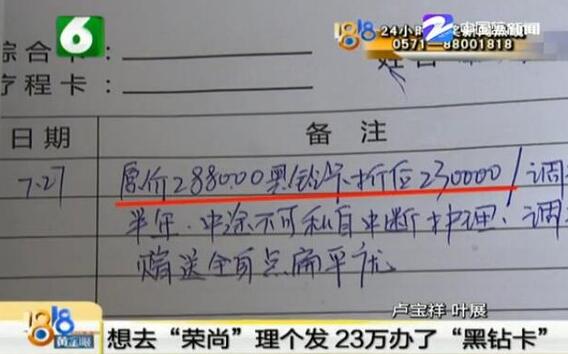 6
1818 24小时
0571-88001818
中国蓝新闻
综合卡:
疗程卡:
日期 备注
7.27 原价288000黑钻卡折后230000/调
半年.中途不可私自中断护理、调
赠送全身点扁平疣
卢宝祥 叶展
1818 黄金眼
想去“荣尚”理个发 23万办了“黑钻卡”